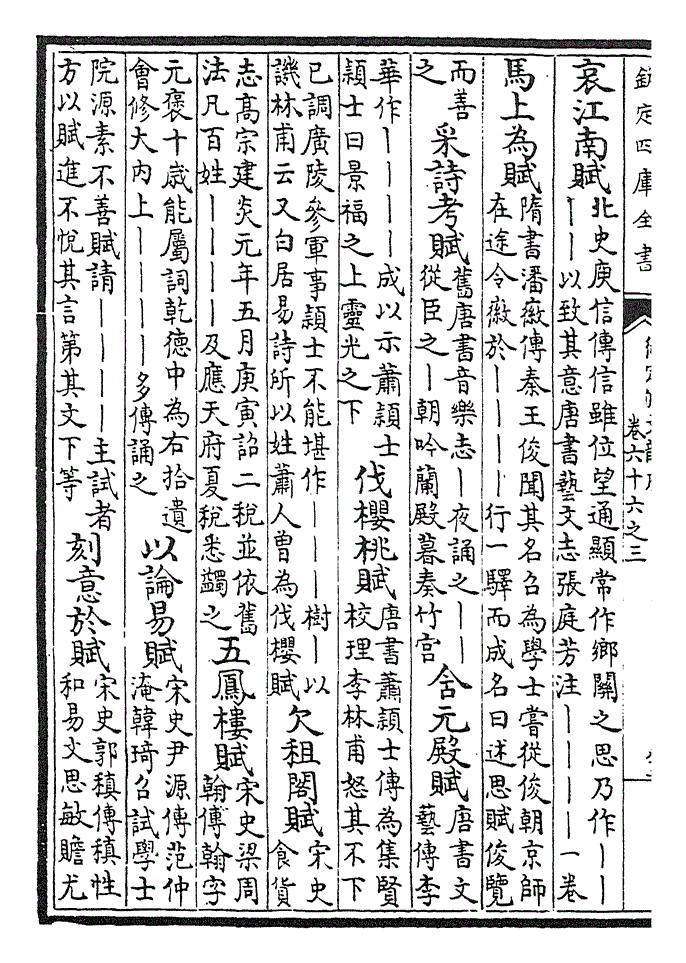 欽定四庫全書
卷六十六之三
哀江南賦
北史庾信傳信雖位望通顯常作鄉關之思乃作丨丨
丨丨以致其意唐書藝文志張庭芳注丨丨丨丨一卷
馬上為賦
隋書潘徽傳秦王俊聞其名召為學士嘗從俊朝京師
在途令徽於丨丨丨丨行一驛而成名曰述思賦俊覽
而善
之
采詩考賦
舊唐書音樂志丨夜誦之丨丨
從臣之丨朝吟蘭殿暮奏竹宫
含元殿賦
唐書文
藝傳李
華作丨丨丨丨成以示蕭穎士
穎士曰景福之上靈光之下
伐櫻桃賦
唐書蕭穎士傳為集賢
校理李林甫怒其不下
已調廣陵參軍事穎士不能堪作丨丨丨樹丨以
譏林甫云又白居易詩所以姓蕭人曾為伐櫻賦
欠租閣賦
宋史
食貨
志高宗建炎元年五月庚寅詔二税並依舊
法凡百姓丨丨丨丨及應天府夏税悉蠲之
五鳳樓賦
宋史梁周
翰傳翰字
元褒十歲能屬詞乾德中為右拾遺
會修大内上丨丨丨丨多傳誦之
以論易賦
宋史尹源傳范仲
淹韓琦召試學士
院源素不善賦請丨丨丨丨主試者
方以賦進不悦其言第其文下等
刻意於賦
宋史郭稹傳稹性
和易文思敏贍尤